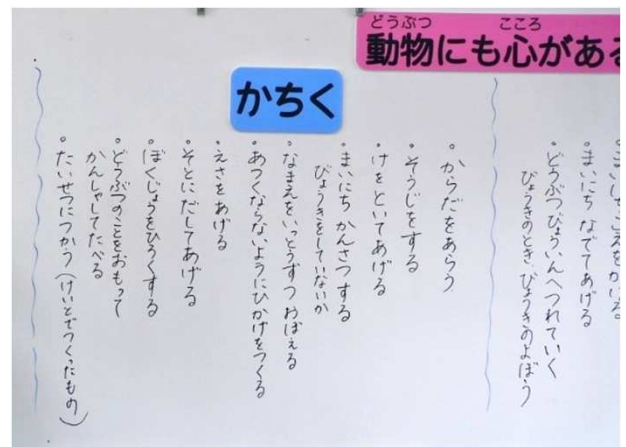 どうぶつ こころ
動物にも心がある
まいにちなでてあげる
どうぶつびょういんへつれていく
びょうきのとき、びょうきのよぼう
かちく
・からだをあらう
・そうじをする
・けをといてあげる
・まいにちかんさつする
びょうきをしていないか
・なまえをいっとうずつおぼえる
・あつくならないようにひかげをつくる
・えさをあげる
・そとにだしてあげる
・ぼくじょうをひろくする
・どうぶつのことをおもって
かんしゃしてたべる
・たいせつにつかう(けいとでつくったもの)